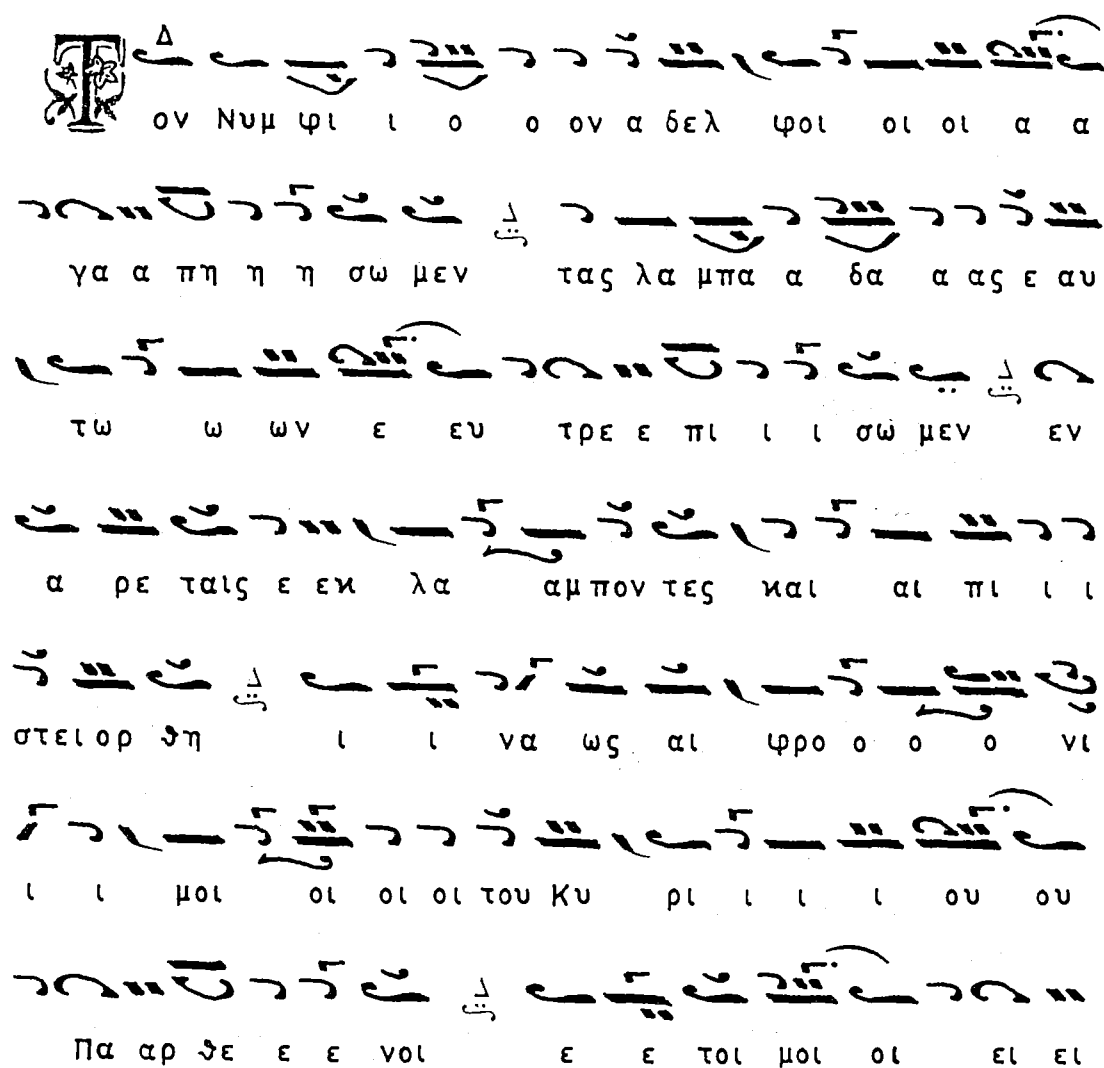 Τ ον Νυμ φι ι ο ο ον α δελ φοι οι οι α α
γα α πη η η σω μεν τας λα μπα α δα α ας ε αυ
τω ω ων ε ευ τρε ε πι ι ι σω μεν εν
α ρε ταις ε εκ λα αμ πον τες και αι πι ι ι
στει ορ θη ι ι να ως αι φρο ο ο ο νι
ι ι μοι οι οι οι του Κυ ρι ι ι ι ου ου
Πα αρ θε ε ε νοι ε ε τοι μοι οι ει ει